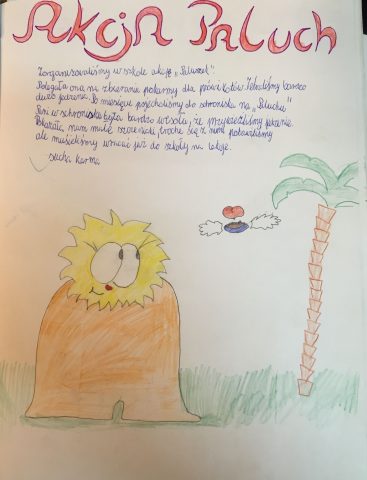 Akcja Paluch
Zorganizowaliśmy w szkole akcję „Paluszek”.
Polegała ona na zbieraniu pokarmu dla Zebraliśmy bardzo
dużo jedzenia. Po miesiącu pojechaliśmy do schroniska na „Paluchu”
Pani w schronisku była bardzo wesoła, że przywieźliśmy jedzenie.
Pokazała nam małe szczeniaki, trochę się z nimi pobawiliśmy
ale musieliśmy wracać już do szkoły na lekcje.
sucha karma